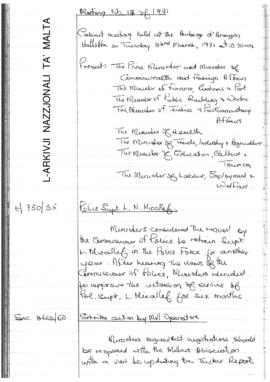 Meeting No. 17 of 1971
Cabinet meeting held at the Auberge d'Aragon
Valletta on Tuesday 23rd March, 1971 at 10.30am
Present: The Prime Minister and Minister of
Commonwealth and Foreign Affairs
The Minister of Finance, Customs & Port
The Minister of Public Building & Works
The Minister of Justice & Parliamentary
Affairs
The Minister of Health
The Minister of Trade, Industry & Agriculture
The Minister of Education, Culture &
Tourism
The Minister of Labour, Employment &
Welfare
L-ARKIVJI NAZZJONALI TA' MALTA
750/55
Police Supt. L. N. Micallef
Ministers considered the request by
the Commissioner of Police to retain Supt.
L. Micallef in the Police Force for another
year. After hearing the views of the
Commissioner of Police, Ministers decided
to approve the extension of service of
Pol. Supt. L. Micallef for six months
/60
action by Mill Operators
Ministers suggested negotiations should
be reopened with the Millers Association
with a view to updating the Report